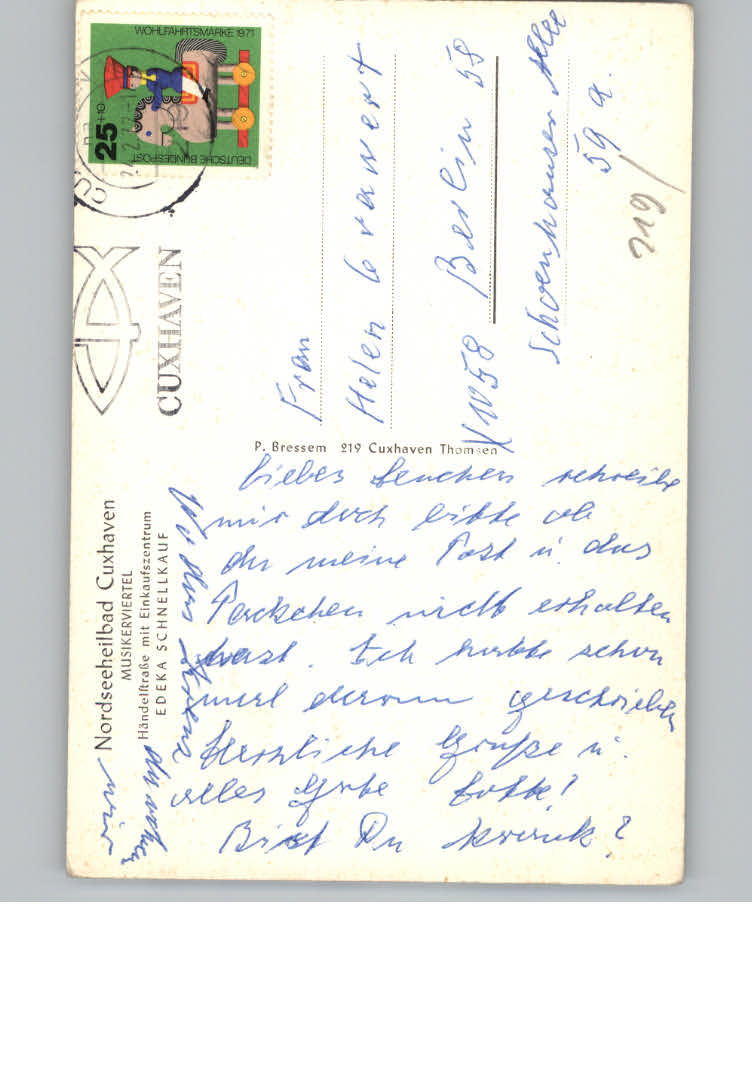 WOHLFAHRTSMARKE 1971
25 +10
DEUTSCHE BUNDESPOST
CUXHAVEN
Nordseeheilbad Cuxhaven
MUSIKERVIERTEL
Händelstraße mit Einkaufszentrum
EDEKA SCHNELLKAUF
P. Bressem 219 Cuxhaven Thomsen
Frau
Helen
1058 Berlin 58
Schoenhauser Allee
59 a.
219/
Liebes Lenchen schreibe
mir doch bitte ob
du meine Post u. das
Päckchen nicht erhalten
hast. Ich hatte schon
mal darum geschrieben
Herzliche Grüße u.
alles Gute Lotte!
Bist Du krank?
wir